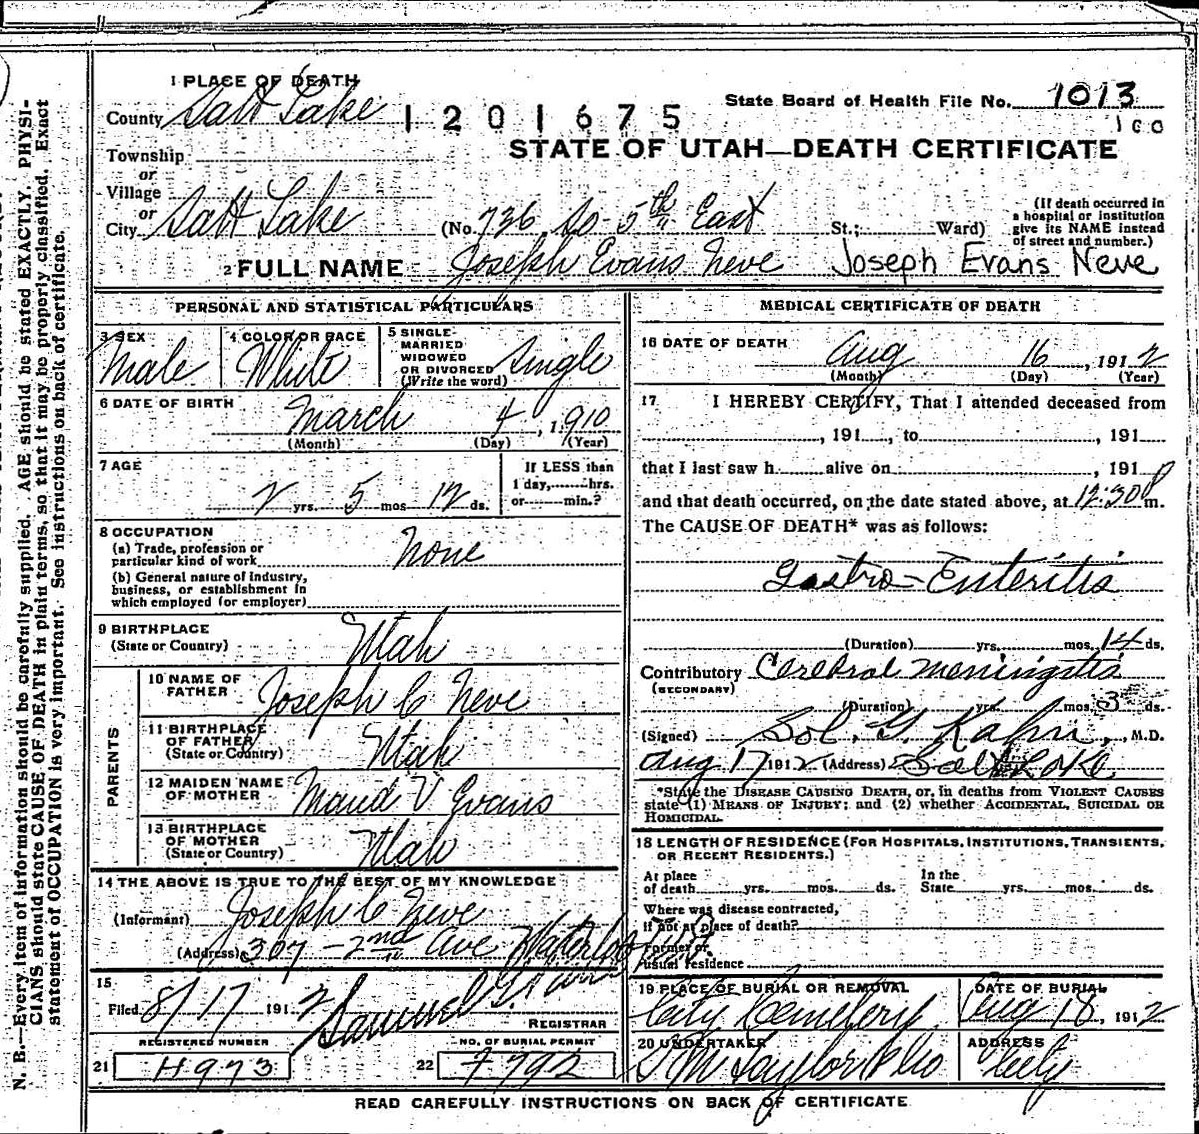 1 PLACE OF DEATH
County Salt Lake
1201675
State Board of Health File No. 1013
100
STATE OF UTAH—DEATH CERTIFICATE
Township
or
Village
or
City Salt Lake (No. 736 So 5th East St.; Ward)
(If death occurred in a hospital or institution give its NAME instead of street and number.)
2 FULL NAME Joseph Evans Neve Joseph Evans Neve
PERSONAL AND STATISTICAL PARTICULARS
3 SEX Male
4 COLOR OR RACE White
5 SINGLE-
MARRIED
WIDOWED
OR DIVORCED
(Write the word) Single
6 DATE OF BIRTH March 4, 1910
(Month) (Day) (Year)
7 AGE 2 yrs. 5 mos 12 ds.
If LESS than
1 day, hrs.
or min.?
8 OCCUPATION
(a) Trade, profession or
particular kind of work None
(b) General nature of industry,
business, or establishment in
which employed (or employer)
9 BIRTHPLACE
(State or Country) Utah
PARENTS
10 NAME OF
FATHER Joseph C Neve
11 BIRTHPLACE
OF FATHER
(State or Country) Utah
12 MAIDEN NAME
OF MOTHER Maud V Evans
13 BIRTHPLACE
OF MOTHER
(State or Country) Utah
14 THE ABOVE IS TRUE TO THE BEST OF MY KNOWLEDGE
(Informant) Joseph C Neve
(Address) 307 - 2nd Ave Waterloo
15
Filed 8/17 1912 Samuel G.
REGISTRAR
REGISTERED NUMBER
21 H973
NO. OF BURIAL PERMIT
22 F792
MEDICAL CERTIFICATE OF DEATH
16 DATE OF DEATH Aug 16, 1912
(Month) (Day) (Year)
17 I HEREBY CERTIFY, That I attended deceased from
, 191 , to , 191
that I last saw h alive on , 191
and that death occurred, on the date stated above, at 12:30 P m.
The CAUSE OF DEATH* was as follows:
Gastro-Enteritis
(Duration) yrs. mos. 14 ds.
Contributory Cerebral Meningitis
(SECONDARY)
(Duration) yrs. mos. 3 ds.
(Signed) Sol. G. Kahn, M.D.
Aug 17 1912 (Address) Salt Lake
*State the DISEASE CAUSING DEATH, or, in deaths from VIOLENT CAUSES
state (1) MEANS OF INJURY; and (2) whether ACCIDENTAL, SUICIDAL OR
HOMICIDAL.
18 LENGTH OF RESIDENCE (FOR HOSPITALS, INSTITUTIONS, TRANSIENTS,
OR RECENT RESIDENTS.)
At place
of death yrs. mos. ds.
In the
State yrs. mos. ds.
Where was disease contracted,
if not at place of death?
Former or
usual residence
19 PLACE OF BURIAL OR REMOVAL
City Cemetery
DATE OF BURIAL
Aug 18, 1912
20 UNDERTAKER
S M Taylor & Co
ADDRESS
City
READ CAREFULLY INSTRUCTIONS ON BACK OF CERTIFICATE
N. B.—Every item of information should be carefully supplied. AGE should be stated EXACTLY. PHYSI-
CIANS should state CAUSE OF DEATH in plain terms, so that it may be properly classified. Exact
statement of OCCUPATION is very important. See instructions on back of certificate.